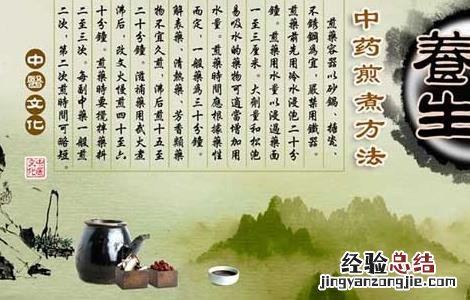 養生
中药煎煮方法
煎藥容器以砂鍋、搪瓷、
不銹鋼為宜，嚴禁用鐵器。
煎藥前先用冷水浸泡二十分
鐘。煎藥用水量以浸過藥面
一至三厘米。大劑量和松泡
易吸水的藥物可適當增加用
水量。煎藥時間應根據藥性
而定，一般藥為三十分鐘。
解表藥、清熱藥、芳香類藥
物不宜久煎，沸后煎十五至
二十分鐘。滋補藥用武火煮
沸后，改文火慢煎四十至六
十分鐘。煎藥時要攪拌藥料
二至三次。每副中藥一般煎
二次，第二次煎時間可略短。
中醫文化
中医
文化
经验总结
jingyanzongjie.com